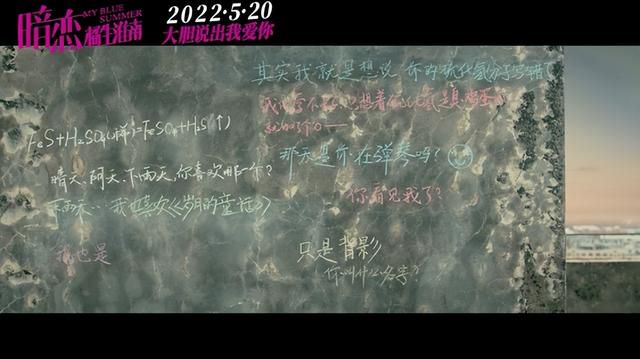 暗恋
MY BLUE SUMMER
橘生淮南
2022·5·20
大胆说出我爱你
其实我就是想说 你的硫化氢分子写错了
FeS+H₂SO₄(稀)=FeSO₄+H₂S(↑)
那天是你在弹琴吗?
晴天、阴天、下雨天,你喜欢哪一个?
你看见我了?
下雨天…我也喜欢《岁月的童话》
我也是
只是背影
你叫什么名字?